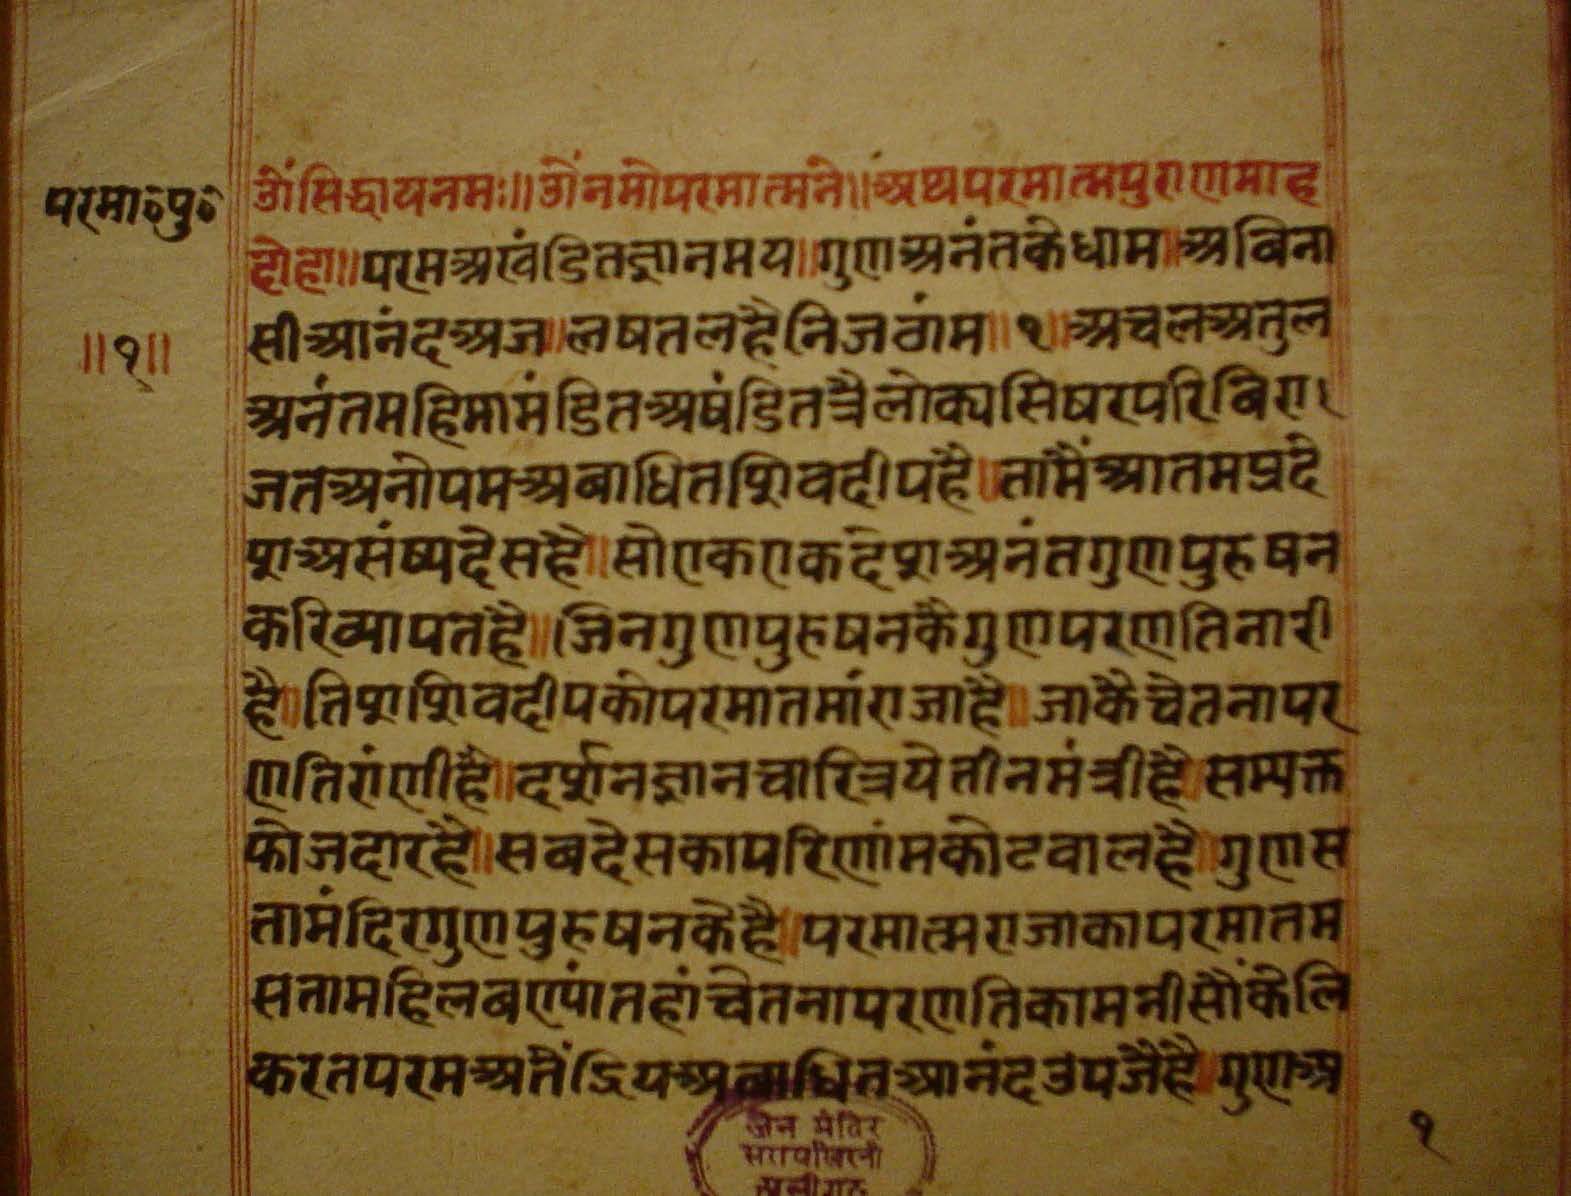 परमा॰पु॰
॥१॥
ओं सिद्धाय नमः॥ ओं नमो परमात्मने॥ अथ परमात्मपुराण माह
दोहा॥ परम अखंडित ज्ञानमय॥ गुण अनंत के धाम॥ अविना
सी आनंद अज॥ लषत लहै निज ठांम॥१॥ अचल अतुल
अनंत महिमा मंडित अषंडित त्रैलोक्य सिषर परि बिरा
जत अनोपम अबाधित शिवदीप है॥ तामैं आतम प्रदे
श असंष्य देस है॥ सो एक एक देश अनंत गुण पुरुषन
करि व्यापत है॥ जिन गुण पुरुषन कै गुण परणति नारी
है॥ तिश शिवदीप को परमातमां राजा है॥ जाकै चेतना पर
णति रांणी है॥ दर्शन ज्ञान चारित्र ये तीन मंत्री है॥ सम्यक्त
फोजदार है॥ सब देस का परिणांम कोटवाल है॥ गुण स
ता मंदिर गुण पुरुषन के है॥ परमात्म राजा का परमातम
सता महिल बण्पां तहां चेतना परणति कामनी सौं केलि
करत परम अतैंद्रिय अबाधित आनंद उपजै है॥ गुण अ
१
जैन मंदिर